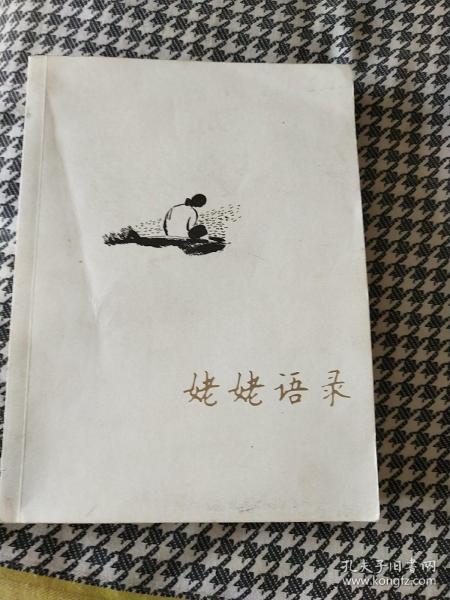 姥姥语录
孔夫子旧书网
www.kongfz.com